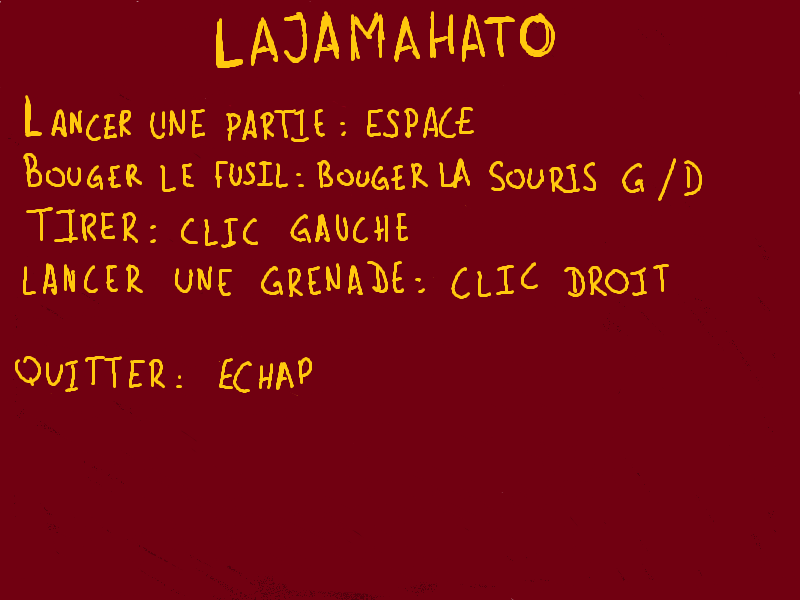 LAJAMAHATO
LANCER UNE PARTIE : ESPACE
BOUGER LE FUSIL : BOUGER LA SOURIS G / D
TIRER : CLIC GAUCHE
LANCER UNE GRENADE : CLIC DROIT
QUITTER : ECHAP